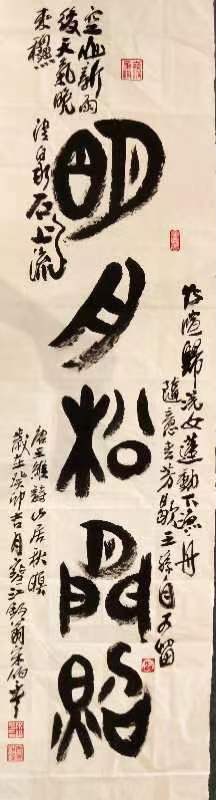 空山新雨
後天氣晚
來秋
明月松間照
清泉石上流
竹喧歸浣女蓮動下漁舟
隨意春芳歇王孫自可留
唐王維詩山居秋暝
歲在癸卯吉月